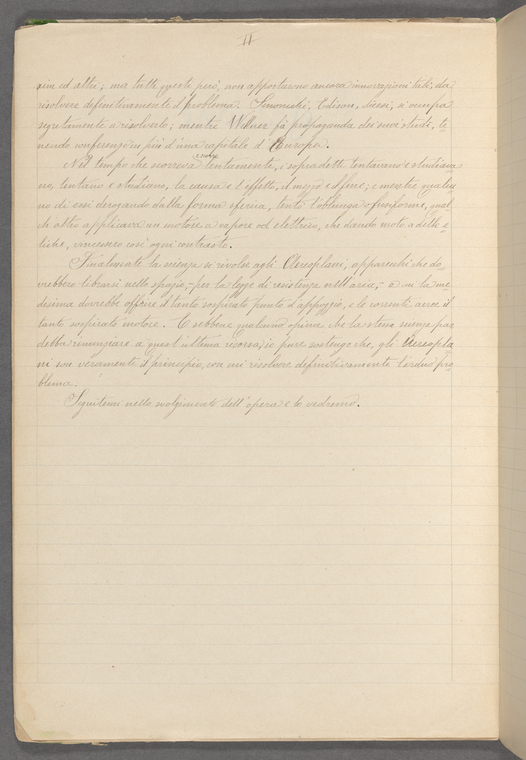 II
aim ed altri; ma tutti questi però, non apportarono ancora innovazioni tali, da
risolvere definitivamente il problema. Simonischi, Edison, dicesi, si occupa
segretamente a risolverlo; mentre Wellner fà propaganda dei suoi studi, te-
nendo conferenze in più d'una capitale d'Europa.
Nel tempo che scorreva lentamente, i sopradetti tentarono e studiava-
no, tentano e studiano, la causa e l'effetto, il mezzo e il fine; e mentre qualcu-
no di essi derogando dalla forma sferica, tentò l'oblunga o fusiforme, qual-
che altro applicava un motore a vapore od elettrico, che dando moto a delle e-
liche, vincesse così ogni contrasto.
Finalmente la scienza si rivolse agli Aereoplani, apparecchi che do-
vrebbero librarsi nello spazio, per la legge di resistenza nell'aria, a cui la me-
desima dovrebbe offrire il tanto sospirato punto d'appoggio, e le correnti aeree il
tanto sospirato motore. E sebbene qualcuno opina che la stessa scienza par
debba rinunziare a quest'ultima risorsa, io pure sostengo che, gli Aereopla-
ni son veramente il principio, con cui risolvere definitivamente l'arduo pro-
blema.
Seguitemi nello svolgimento dell'opera e lo vedremo.